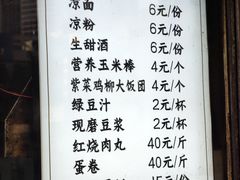 凉面 6元/份
凉粉 6元/份
生甜酒 6元/份
营养玉米棒 4元/个
紫菜鸡柳大饭团 4元/个
绿豆汁 2元/杯
现磨豆浆 2元/杯
红烧肉丸 40元/斤
蛋卷 40元/斤
15元/份